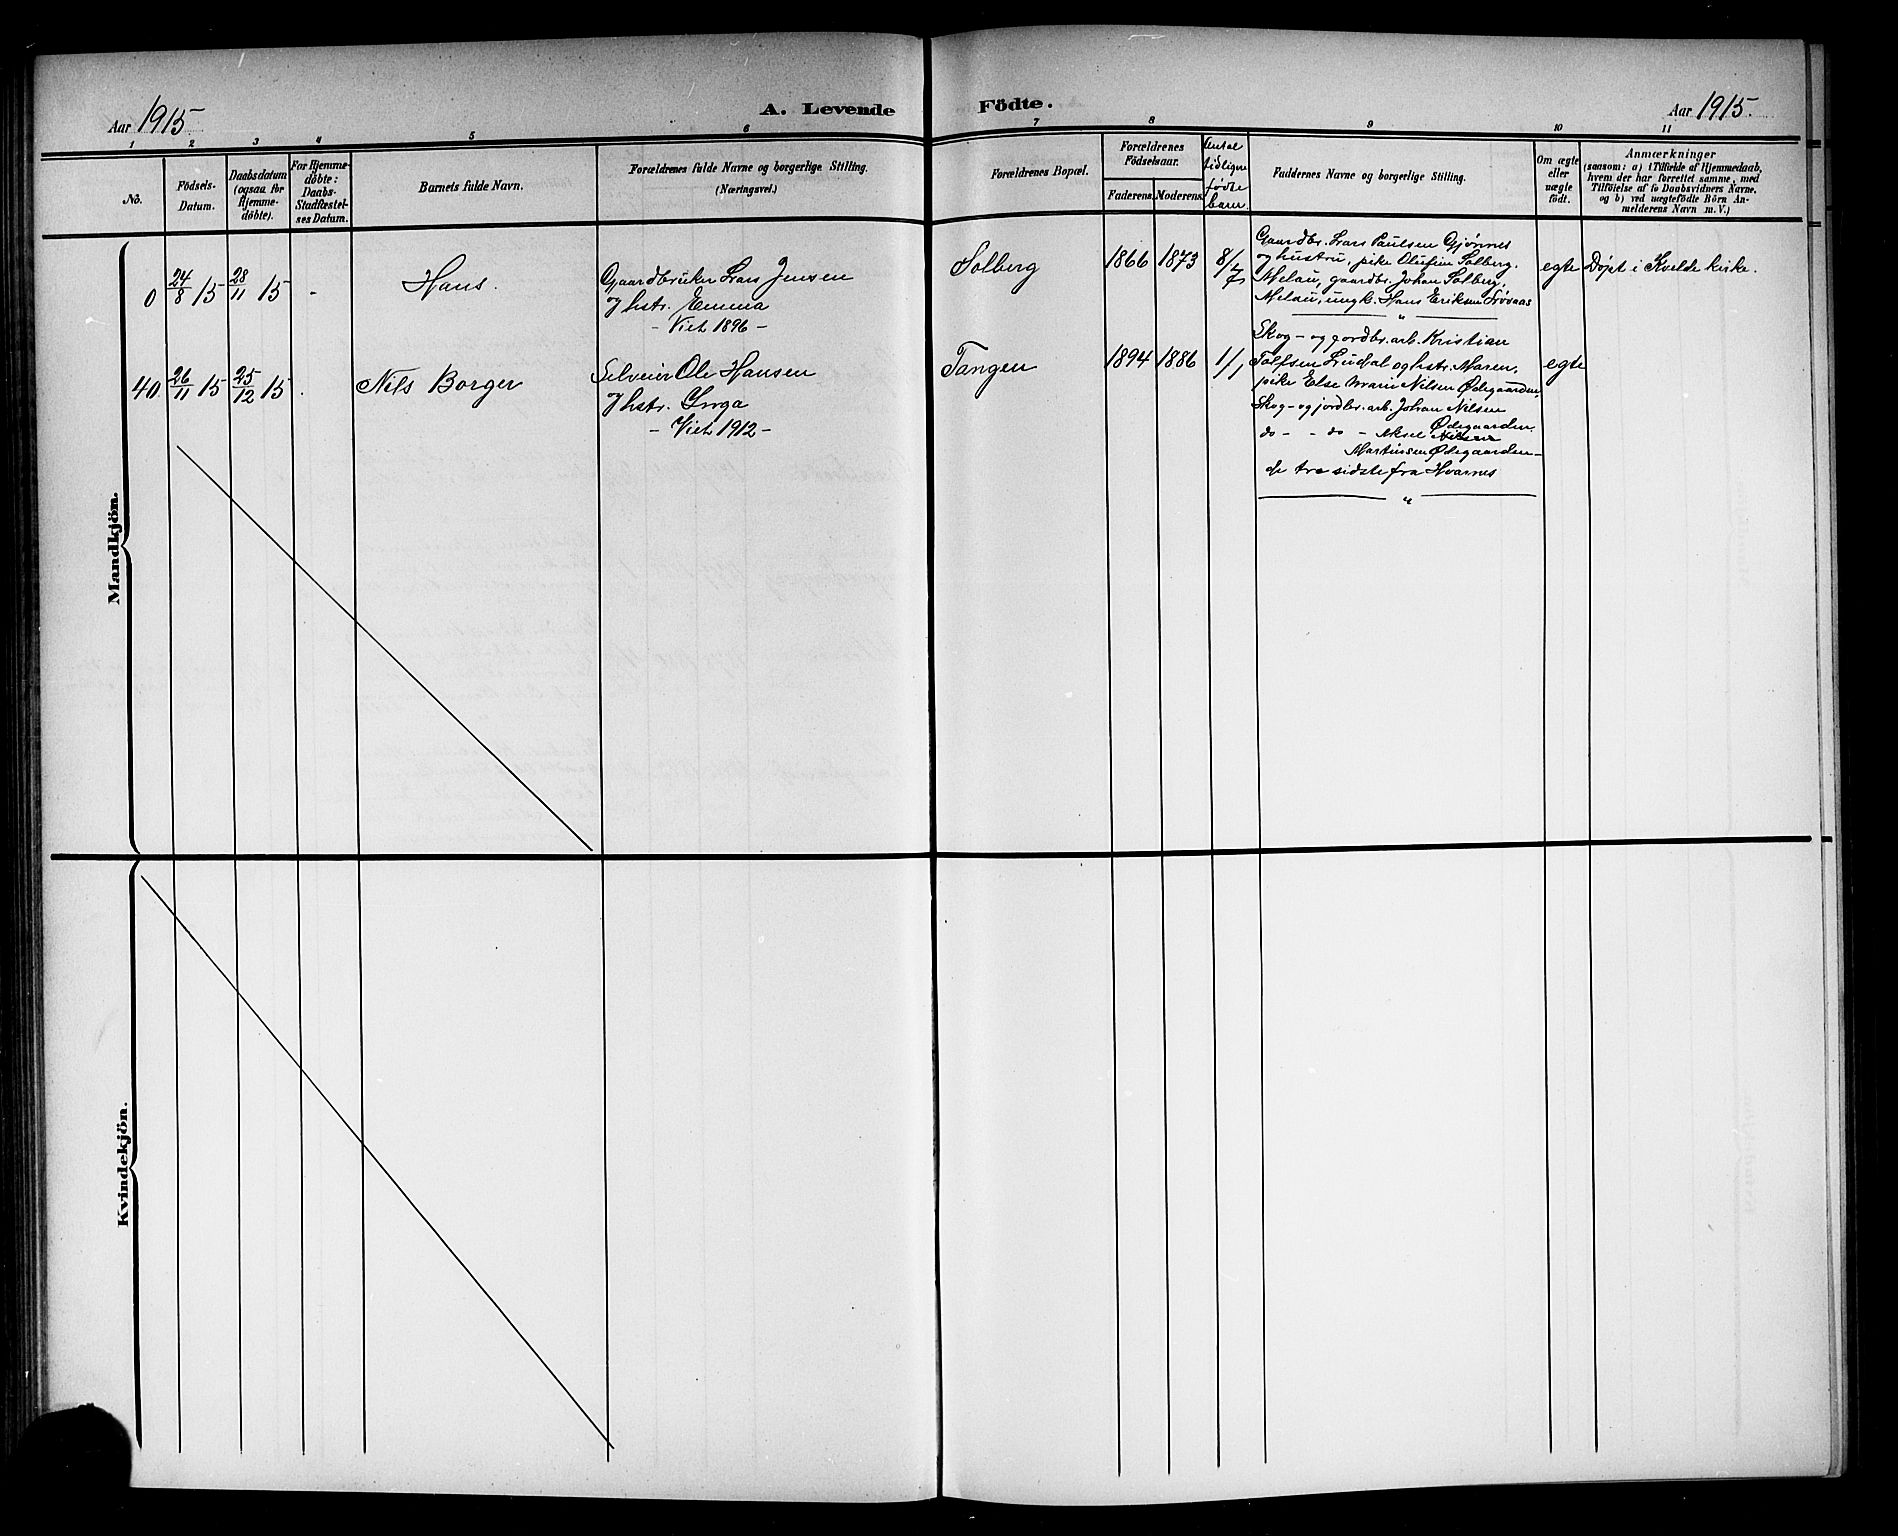 Aar 1915.
A. Levende Födte.
Aar 1915.
1 2 3 4 5 6 7 8 9 10 11
No.
Födsels-
Datum.
Daabsdatum
(ogsaa for
Hjemme-
döbte).
For Hjemme-
döbte:
Daabs-
Stadfæstel-
ses Datum.
Barnets fulde Navn.
Forældrenes fulde Navne og borgerlige Stilling.
(Næringsvei.)
Forældrenes Bopæl.
Forældrenes
Födselsaar.
Faderens. Moderens.
Antal
tidligere
fødte
barn.
Faddernes Navne og borgerlige Stilling.
Om ægte
eller
uægte
födt.
Anmærkninger
(saasom: a) i Tilfælde af Hjemmedaab,
hvem der har forrettet samme, med
Tilföielse af to Daabsvidners Navne.
og b) ved uægtefödte Börn An-
melderens Navn m. V.)
Mandkjön.
0 24/8 15 28/11 15 - Hans.
Gaardbruker Lars Jensen
og hstr. Emma
- Viet 1896 -
Solberg 1866 1873 8/7
Gaardbr. Lars Paulsen Gjønnes
og hustru, pike Olufine Solberg,
Melau, gaardbr. Johan Solberg,
Melau, ungk. Hans Eriksen
egte Døpt i Kvelde kirke.
40 26/11 15 25/12 15 . Nils Borger
Selveier Ole Hansen
og hstr. Inga
- Viet 1912 -
Tangen 1894 1886 1/1
Skog- og jordbr. arb. Kristian
Tolfsen og hstr. Maren,
pike Else Marie Nilsen Ødegaarden,
Skog- og jordbr. arb. Johan Nilsen
Ødegaarden.
do - - do - Aksel Nilsen
Martinsen Ødegaarden -
de tre sidste fra Hvarnes
egte
Kvindekjön.